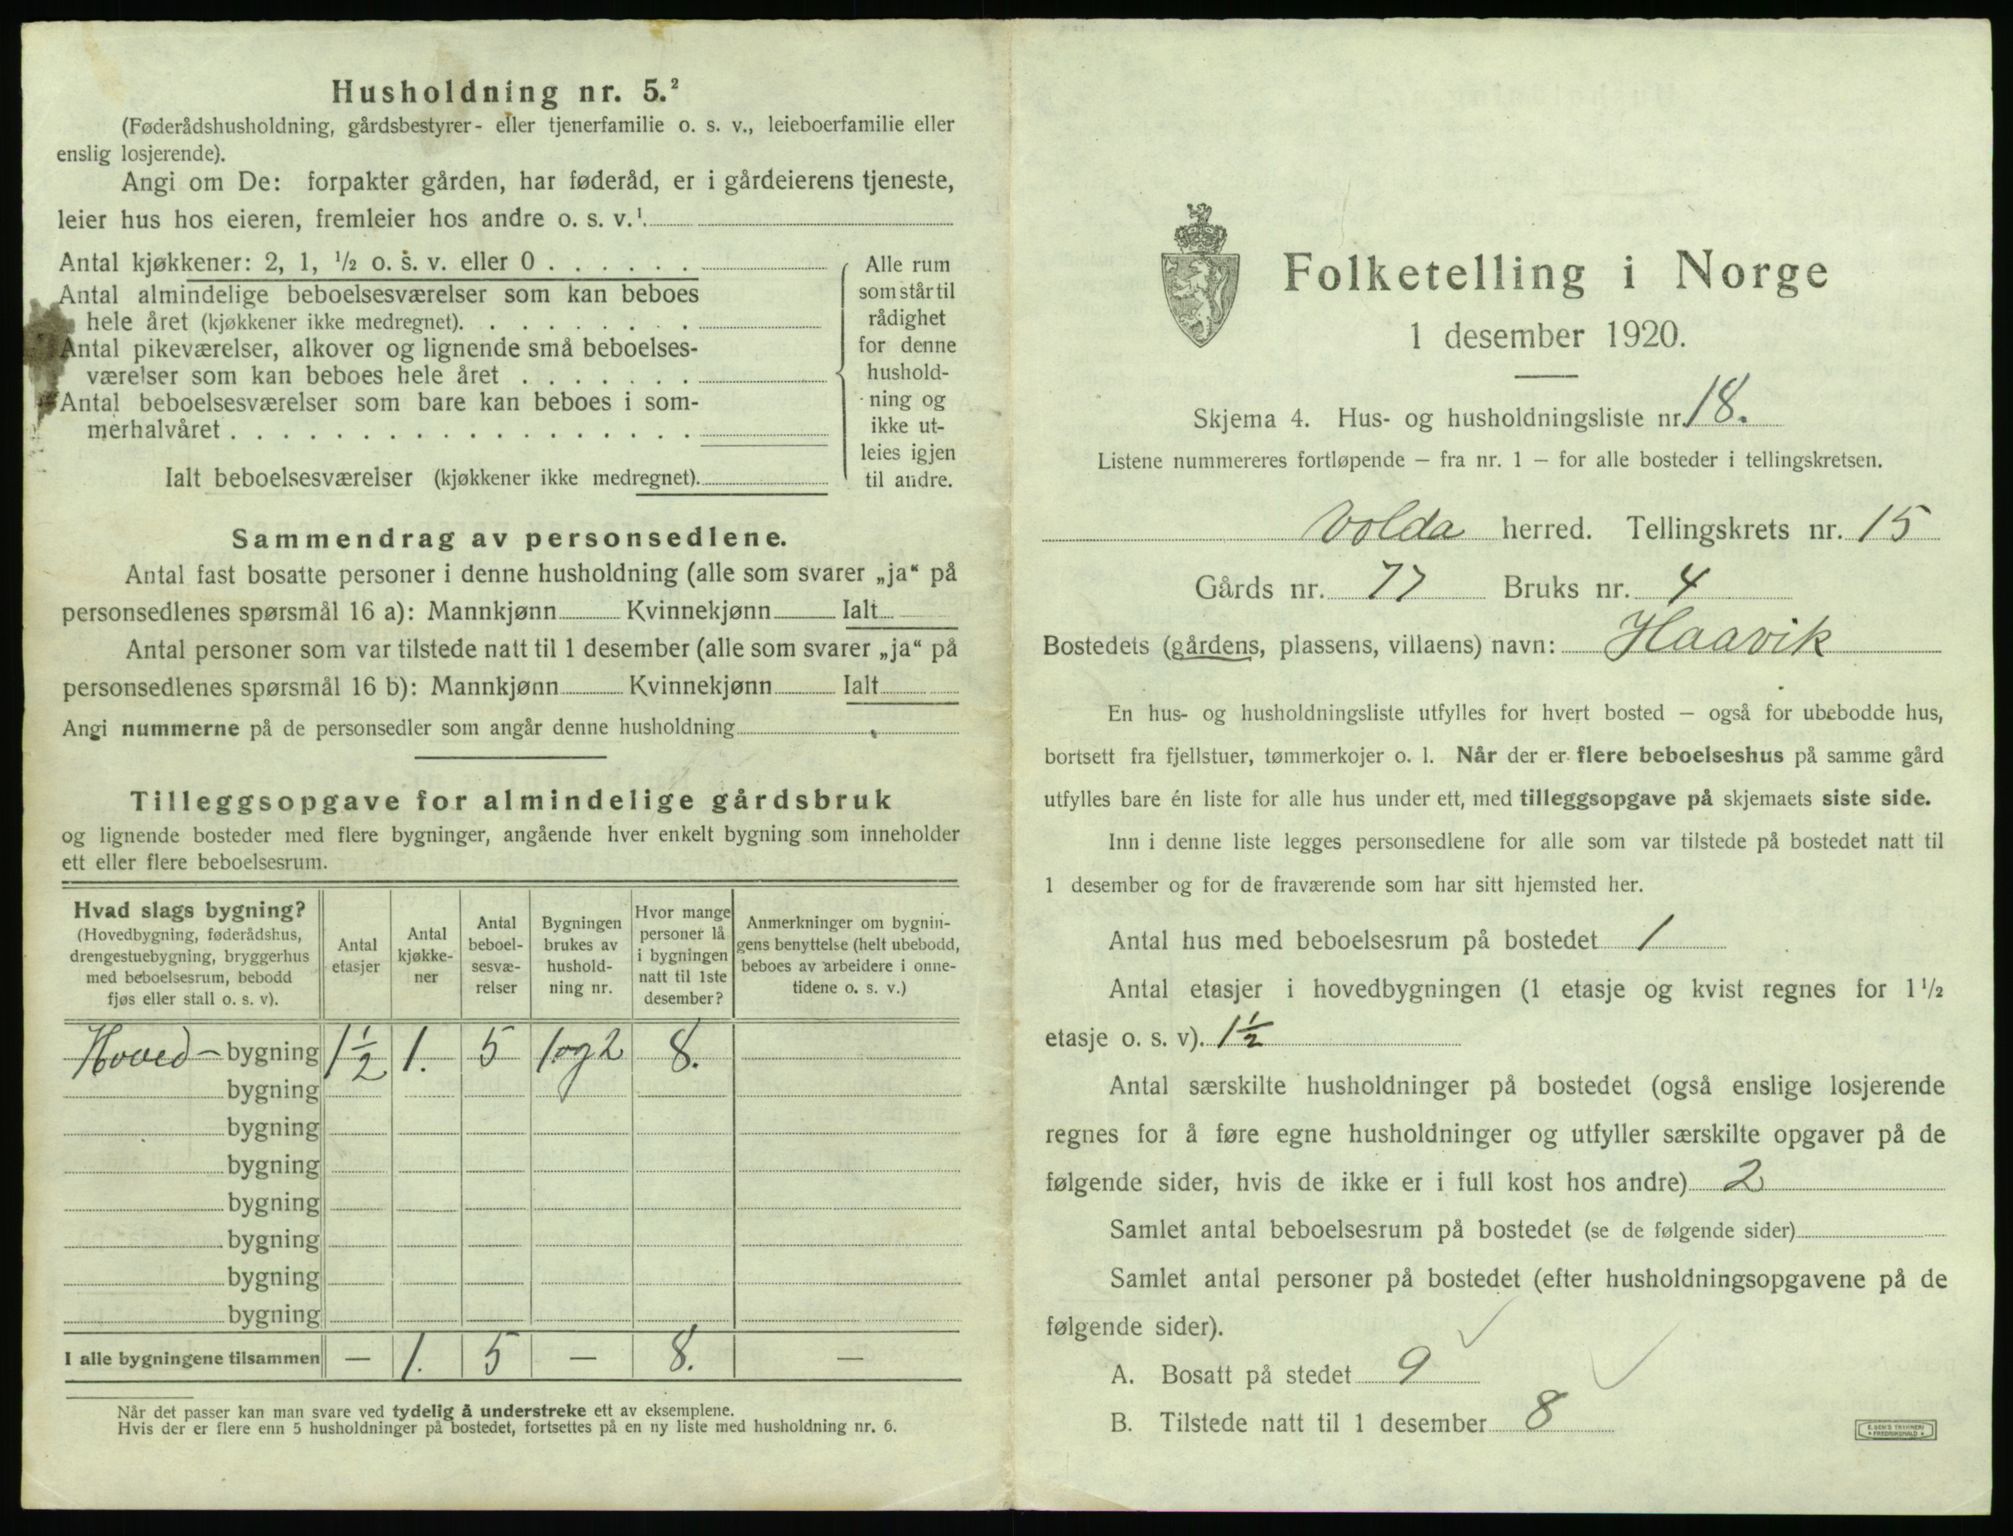 Husholdning nr. 5.²
(Føderådshusholdning, gårdsbestyrer- eller tjenerfamilie o. s. v., leieboerfamilie eller
enslig losjerende).
Angi om De: forpakter gården, har føderåd, er i gårdeierens tjeneste,
leier hus hos eieren, fremleier hos andre o. s. v.¹
Antal kjøkkener: 2, 1, ½ o. s. v. eller 0 . . . . . .
Antal almindelige beboelsesværelser som kan beboes
hele året (kjøkkener ikke medregnet). . . . . . . . .
Antal pikeværelser, alkover og lignende små beboelses-
værelser som kan beboes hele året . . . . . . .
Antal beboelsesværelser som bare kan beboes i som-
merhalvåret . . . . . . . . . . . . . . . . . .
Ialt beboelsesværelser (kjøkkener ikke medregnet).
Alle rum
som står til
rådighet
for denne
hushold-
ning og
ikke ut-
leies igjen
til andre.
Sammendrag av personsedlene.
Antal fast bosatte personer i denne husholdning (alle som svarer „ja“ på
personsedlenes spørsmål 16 a): Mannkjønn Kvinnekjønn Ialt
Antal personer som var tilstede natt til 1 desember (alle som svarer „ja“ på
personsedlenes spørsmål 16 b): Mannkjønn Kvinnekjønn Ialt
Angi nummerne på de personsedler som angår denne husholdning
Tilleggsopgave for almindelige gårdsbruk
og lignende bosteder med flere bygninger, angående hver enkelt bygning som inneholder
ett eller flere beboelsesrum.
Hvad slags bygning?
(Hovedbygning, føderådshus,
drengestuebygning, bryggerhus
med beboelsesrum, bebodd
fjøs eller stall o. s. v).
Antal
etasjer
Antal
kjøkke-
ner
Antal
beboel-
sesvæ-
relser
Bygningen
brukes av
hushold-
ning nr.
Hvor mange
personer lå
i bygningen
natt til 1ste
desember?
Anmerkninger om bygnin-
gens benyttelse (helt ubebodd,
beboes av arbeidere i onne-
tidene o. s. v.)
Hoved- bygning 1½ 1. 5 1 og 2 8.
bygning
bygning
bygning
bygning
bygning
bygning
bygning
I alle bygningene tilsammen — 1. 5 — 8. —
Når det passer kan man svare ved tydelig å understreke ett av eksemplene.
Hvis der er flere enn 5 husholdninger på bostedet, fortsettes på en ny liste med husholdning nr. 6.
Folketelling i Norge
1 desember 1920.
Skjema 4. Hus- og husholdningsliste nr. 18.
Listene nummereres fortløpende — fra nr. 1 — for alle bosteder i tellingskretsen.
Volda herred. Tellingskrets nr. 15
Gårds nr. 77 Bruks nr. 4
Bostedets (gårdens, plassens, villaens) navn: Haavik
En hus- og husholdningsliste utfylles for hvert bosted — også for ubebodde hus,
bortsett fra fjellstuer, tømmerkojer o. l. Når der er flere beboelseshus på samme gård
utfylles bare én liste for alle hus under ett, med tilleggsopgave på skjemaets siste side.
Inn i denne liste legges personsedlene for alle som var tilstede på bostedet natt til
1 desember og for de fraværende som har sitt hjemsted her.
Antal hus med beboelsesrum på bostedet 1
Antal etasjer i hovedbygningen (1 etasje og kvist regnes for 1½
etasje o. s. v). 1½
Antal særskilte husholdninger på bostedet (også enslige losjerende
regnes for å føre egne husholdninger og utfyller særskilte opgaver på de
følgende sider, hvis de ikke er i full kost hos andre) 2
Samlet antal beboelsesrum på bostedet (se de følgende sider)
Samlet antal personer på bostedet (efter husholdningsopgavene på de
følgende sider).
A. Bosatt på stedet 9
B. Tilstede natt til 1 desember 8